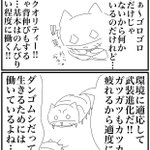 ゴロゴロ
だけじゃ
ないから何か
いるのだけれど…
クオリティー!!
は背伸びをする
…基本のんびり
い程度に働く!!
環境に適応して
武装進化だ!!
ガツガツもカツカツも
疲れるから適度に
ダンゴムシだって
生きるためには
働いているよね…